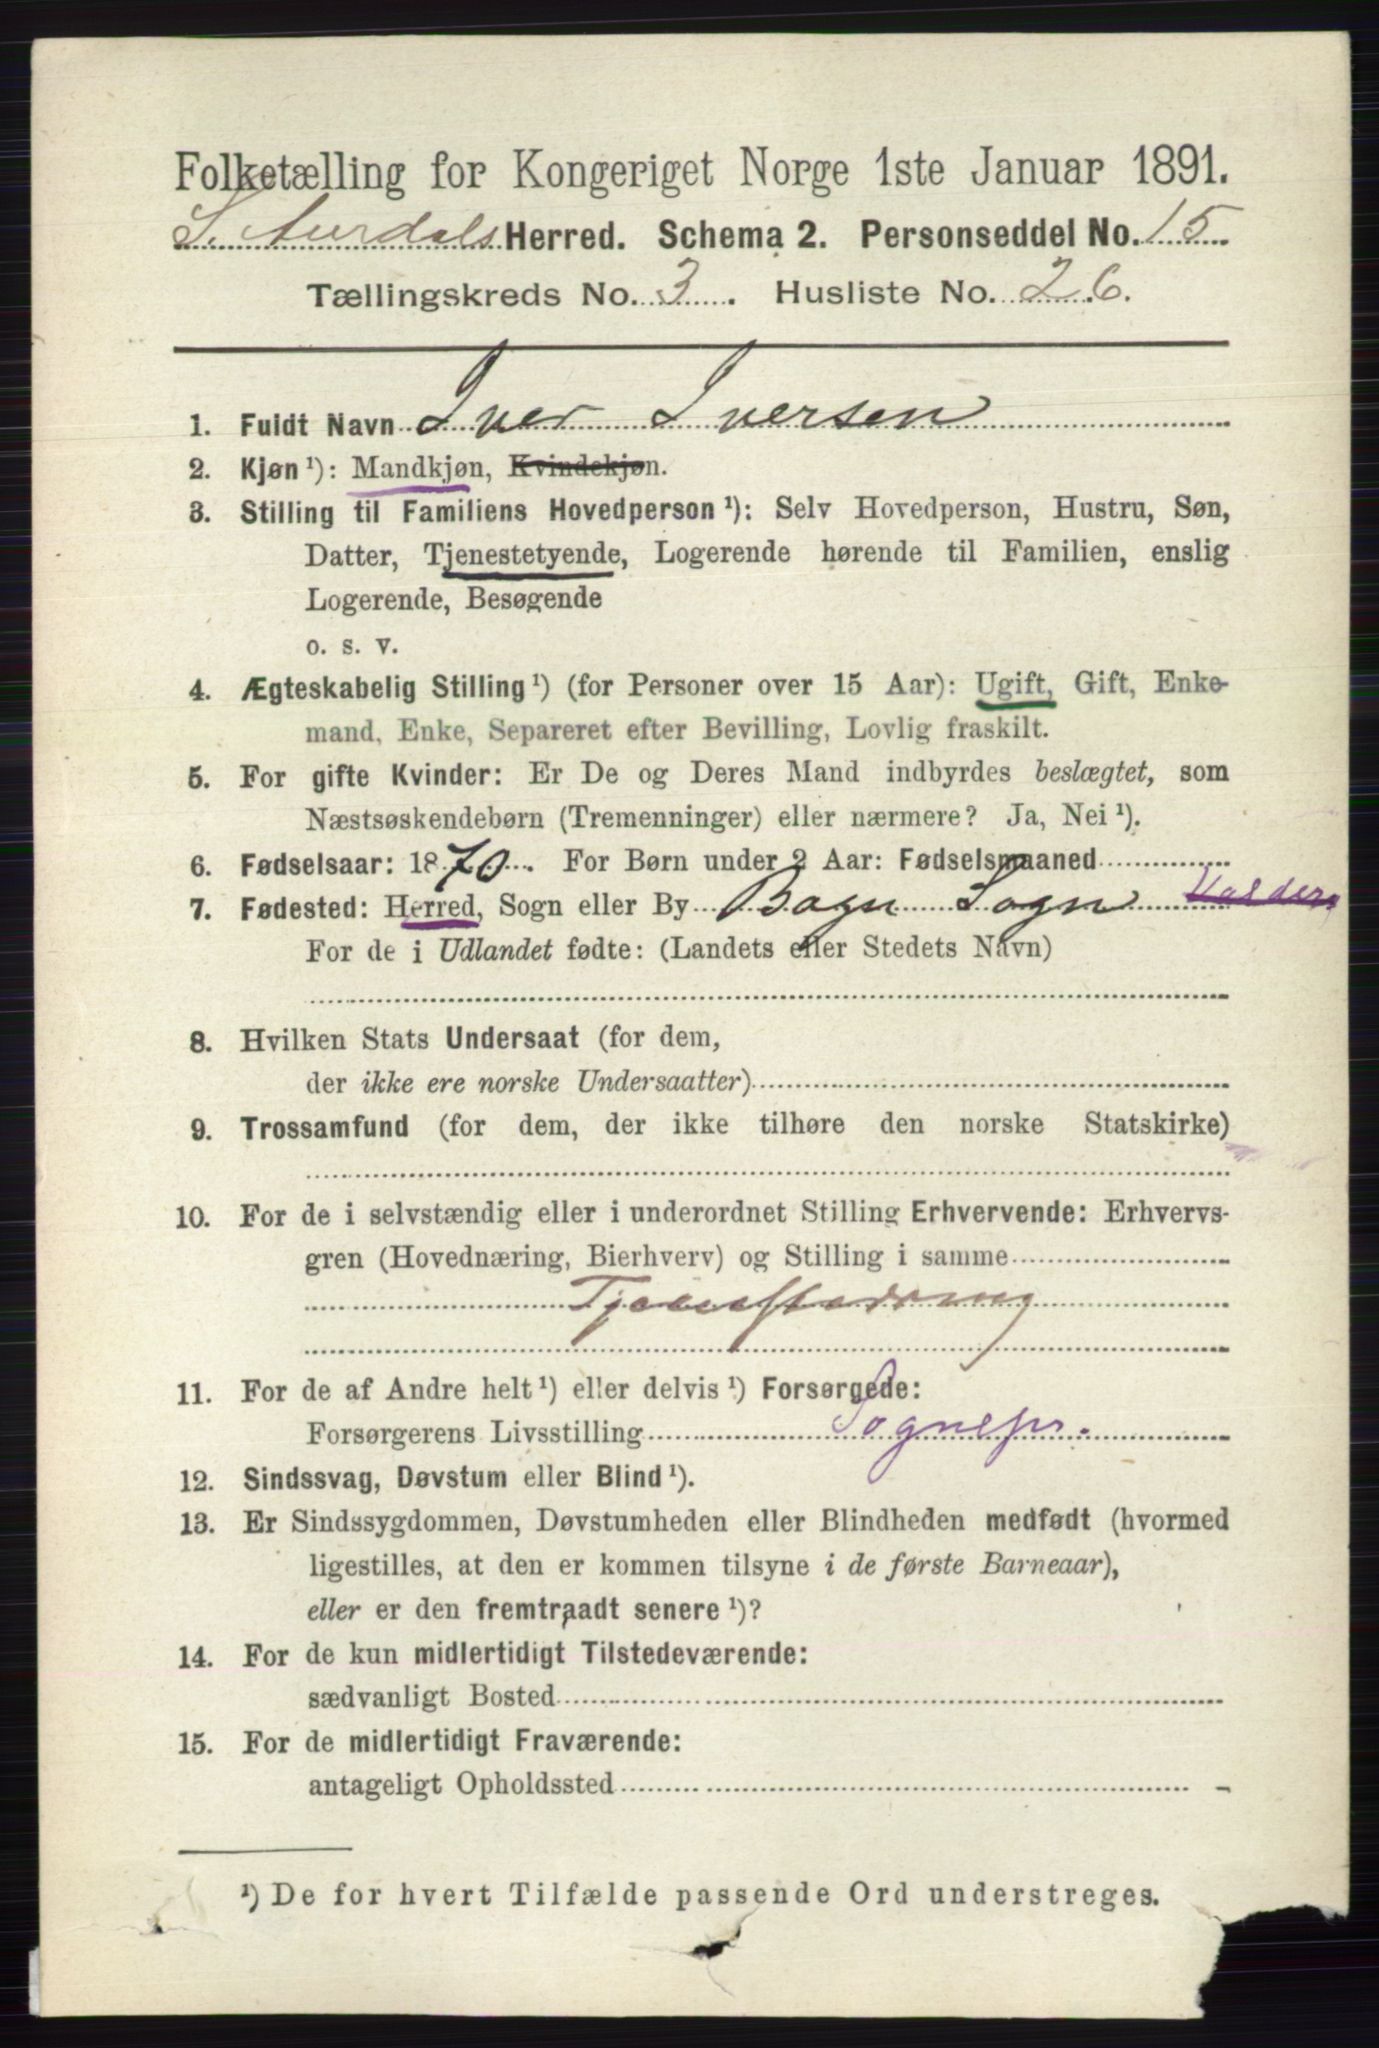 Folketælling for Kongeriget Norge 1ste Januar 1891.
S. Aurdals Herred. Schema 2. Personseddel No. 15
Tællingskreds No. 3. Husliste No. 26.
1. Fuldt Navn Iver Iversen
2. Kjøn ¹): Mandkjøn, Kvindekjøn.
3. Stilling til Familiens Hovedperson ¹): Selv Hovedperson, Hustru, Søn,
Datter, Tjenestetyende, Logerende hørende til Familien, enslig
Logerende, Besøgende
o. s. v.
4. Ægteskabelig Stilling ¹) (for Personer over 15 Aar): Ugift, Gift, Enke-
mand, Enke, Separeret efter Bevilling, Lovlig fraskilt.
5. For gifte Kvinder: Er De og Deres Mand indbyrdes beslægtet, som
Næstsøskendebørn (Tremenninger) eller nærmere? Ja, Nei ¹).
6. Fødselsaar: 1870. For Børn under 2 Aar: Fødselsmaaned
7. Fødested: Herred, Sogn eller By Bagn Sogn Valders
For de i Udlandet fødte: (Landets eller Stedets Navn)
8. Hvilken Stats Undersaat (for dem,
der ikke ere norske Undersaatter)
9. Trossamfund (for dem, der ikke tilhøre den norske Statskirke)
10. For de i selvstændig eller i underordnet Stilling Erhvervende: Erhvervs-
gren (Hovednæring, Bierhverv) og Stilling i samme
11. For de af Andre helt ¹) eller delvis ¹) Forsørgede:
Forsørgerens Livsstilling Sognepr.
12. Sindssvag, Døvstum eller Blind ¹).
13. Er Sindssygdommen, Døvstumheden eller Blindheden medfødt (hvormed
ligestilles, at den er kommen tilsyne i de første Barneaar),
eller er den fremtraadt senere ¹)?
14. For de kun midlertidigt Tilstedeværende:
sædvanligt Bosted
15. For de midlertidigt Fraværende:
antageligt Opholdssted
¹) De for hvert Tilfælde passende Ord understreges.